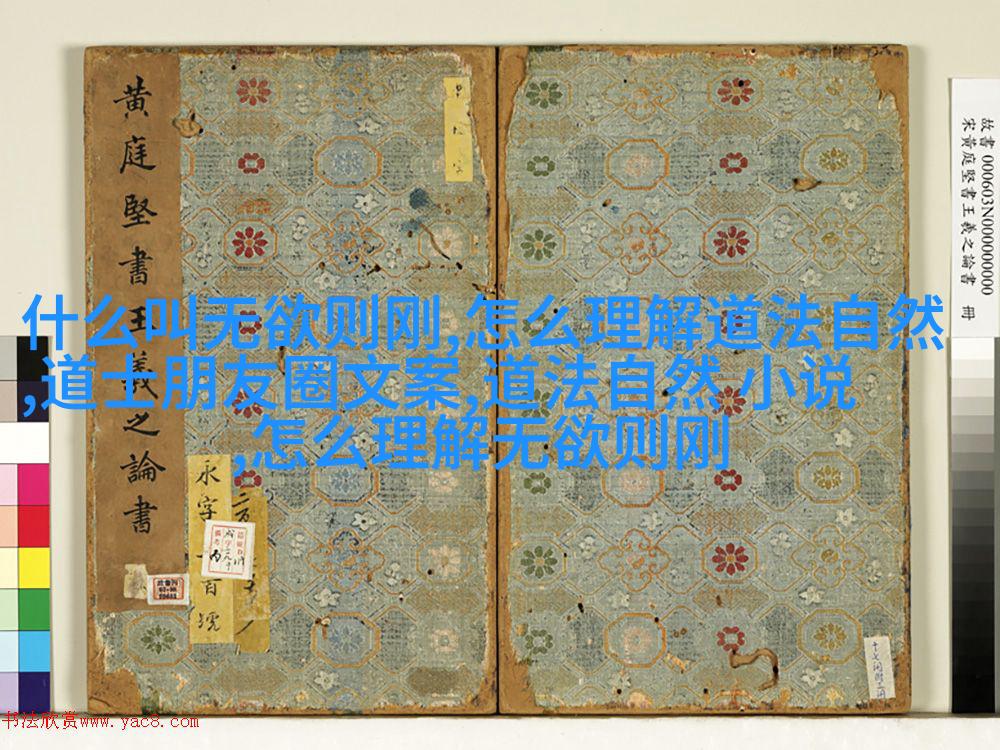 什么叫无欲则刚,怎么理解道法自然
,道士朋友圈文案,道法自然 小说
,怎么理解无欲则刚
黄庭堅書王羲之論書
永字
百號
故書 000603N000000000
宋黄庭堅書王羲之論書 冊
书法欣赏www.yac8.com